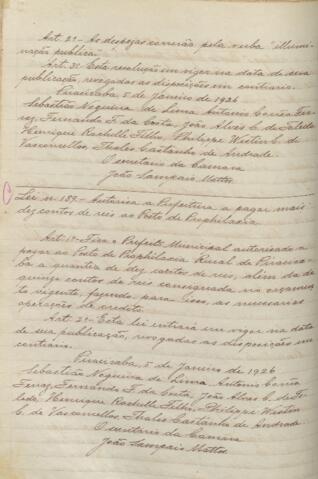 Art. 2º - As despezas correrão pela verba "illumi-
nação publica".
Art. 3º Esta resolução em vigor na data de sua
publicação, revogadas as disposições em contrario.
Piracicaba, 5 de Janeiro de 1926
Sebastião Nogueira de Lima, Antonio Corrêa Fer-
raz, Fernando F. da Costa, João Alves C. de Toledo
Henrique Rochelle Filho, Philippe Westin C. de
Vasconcellos, Thales Castanho de Andrade.
O secretario da Camara
João Sampaio Mattos
Lei n. 189. - Autorisa a Prefeitura a pagar mais
dez contos de reis ao Posto de Prophilaxia
Art. 1º - Fica o Prefeito Municipal autorisado a
pagar ao Posto de Prophilaxia Rural de Piracica-
ba a quantia de dez contos de reis, alem da de
quinze contos de reis consignada no orçamen-
to vigente, fazendo, para isso, as necessarias
operações de credito.
Art. 2º - Esta lei entrará em vigor na data
de sua publicação, revogadas as disposições em
contrario.
Piracicaba, 5 de Janeiro de 1926
Sebastião Nogueira de Lima, Antonio Corrêa
Ferraz, Fernando F. da Costa, João Alves C. de To-
ledo, Henrique Rochelle Filho, Philippe Westin
C. de Vasconcellos, Thales Castanho de Andrade.
O secretario da Camara
João Sampaio Mattos